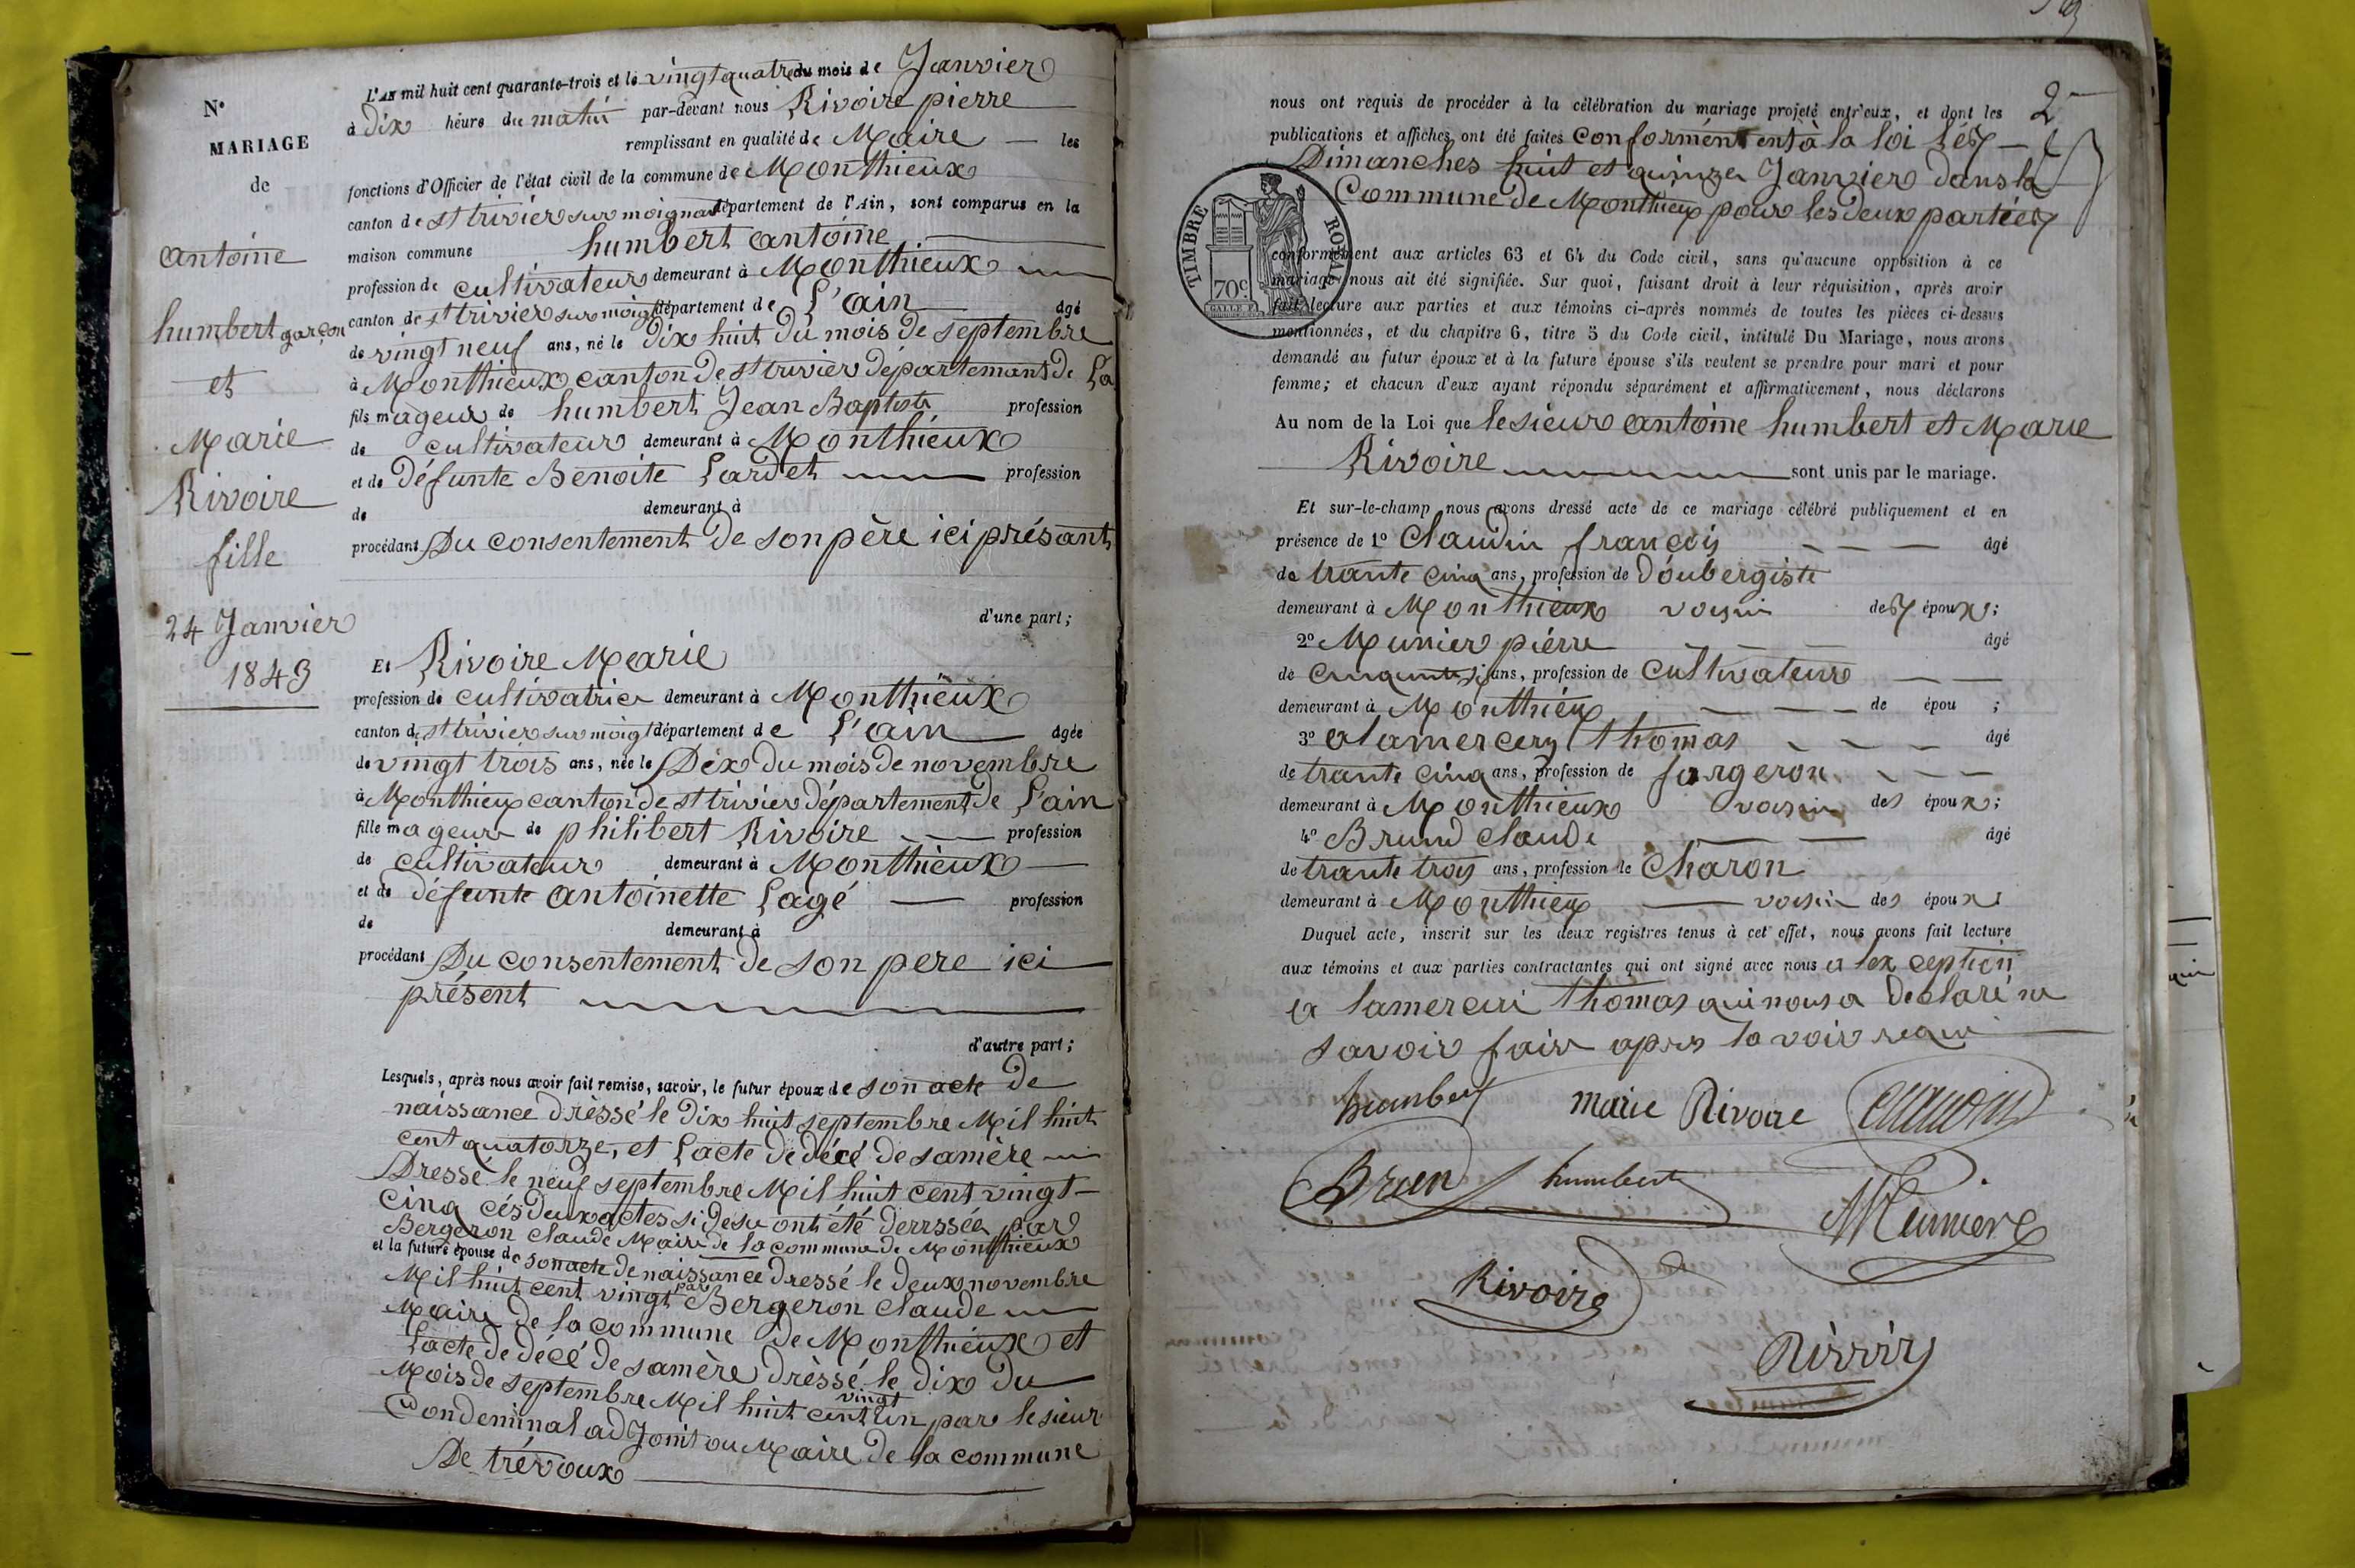 N°
MARIAGE
de
antoine
humbert garçon
et
Marie
Rivoire
fille
24 Janvier
1843
L'AN mil huit cent quarante-trois et le vingt quatre du mois de Janvier
à dix héure du matin par-devant nous Rivoire pierre
remplissant en qualité de Maire les
fonctions d'Officier de l'état civil de la commune de Monthieux
canton de st trivier sur moignat département de l'Ain, sont comparus en la
maison commune humbert antoine
profession de cultivateur demeurant à Monthieux
canton de st trivier sur moigt département de L'ain âgé
de vingt neuf ans, né le dix huit du mois de septembre
à Monthieux canton de st trivier départemant de La
fils mageur de humbert Jean Baptiste profession
de cultivateur demeurant à Monthieux
et de défunte Benoite Lardet profession
de demeurant à
procédant Du consentement de son père ici présant
d'une part;
Et Rivoire Marie
profession de cultivatrice demeurant à Monthieux
canton de st trivier sur moigt département de L'ain âgée
de vingt trois ans, née le Dix du mois de novembre
à Monthieux canton de st trivier département de L'ain
fille mageure de philibert Rivoire profession
de cultivateur demeurant à Monthieux
et de défunte antoinette Lagé profession
de demeurant à
procédant Du consentement de son pere ici
présent
d'autre part;
Lesquels, après nous avoir fait remise, savoir, le futur époux de son acte de
naissance drèssé le dix huit septembre Mil huit
cent quatorze, et L'acte de décé de samère
Dressé le neuf septembre Mil huit cent vingt-
cinq cés deux actes si desu ont été derrssée par
Bergeron Claude Maire de la commune de Monthieux
et la future épouse de son acte de naissance dressé le deux novembre
Mil huit cent vingt par Bergeron Claude
Maire de la commune de Monthieux et
L'acte de décé de samère drèssé le dix du
Mois de septembre Mil huit cent vingt un par le sieur
Condeminal adJoint ou Maire de la commune
De trévoux
2
nous ont requis de procéder à la célébration du mariage projeté entr'eux, et dont les
publications et affiches ont été faites conformément à la loi les
Dimanches huit et quinze Janvier dans la
Commune de Monthieux pour les deux parties
TIMBRE ROYAL
70c
conformément aux articles 63 et 64 du Code civil, sans qu'aucune opposition à ce
mariage nous ait été signifiée. Sur quoi, faisant droit à leur réquisition, après avoir
fait lecture aux parties et aux témoins ci-après nommés de toutes les pièces ci-dessus
mentionnées, et du chapitre 6, titre 5 du Code civil, intitulé Du Mariage, nous avons
demandé au futur époux et à la future épouse s'ils veulent se prendre pour mari et pour
femme; et chacun d'eux ayant répondu séparément et affirmativement, nous déclarons
Au nom de la Loi que le sieur antoine humbert et Marie
Rivoire sont unis par le mariage.
Et sur-le-champ nous avons dressé acte de ce mariage célébré publiquement et en
présence de 1° Claudin françois âgé
de trante cinq ans, profession de d'oubergiste
demeurant à Monthieux voisin des époux;
2° Munier piérre âgé
de cinquante six ans, profession de cultivateur
demeurant à Monthieux de épou ;
3° alamercery thomas âgé
de trante cinq ans, profession de forgeron
demeurant à Monthieux voisin des époux;
4° Brund Claude âgé
de trante trois ans, profession de Charon
demeurant à Monthieux voisin des époux
Duquel acte, inscrit sur les deux registres tenus à cet effet, nous avons fait lecture
aux témoins et aux parties contractantes qui ont signé avec nous a lexception
a lamerceri thomas qui nous a déclaré ne
savoir faire apres lavoir requi
humbert marie Rivoire Claudin
Brun humbert
Meunier
Rivoire
Rivoire